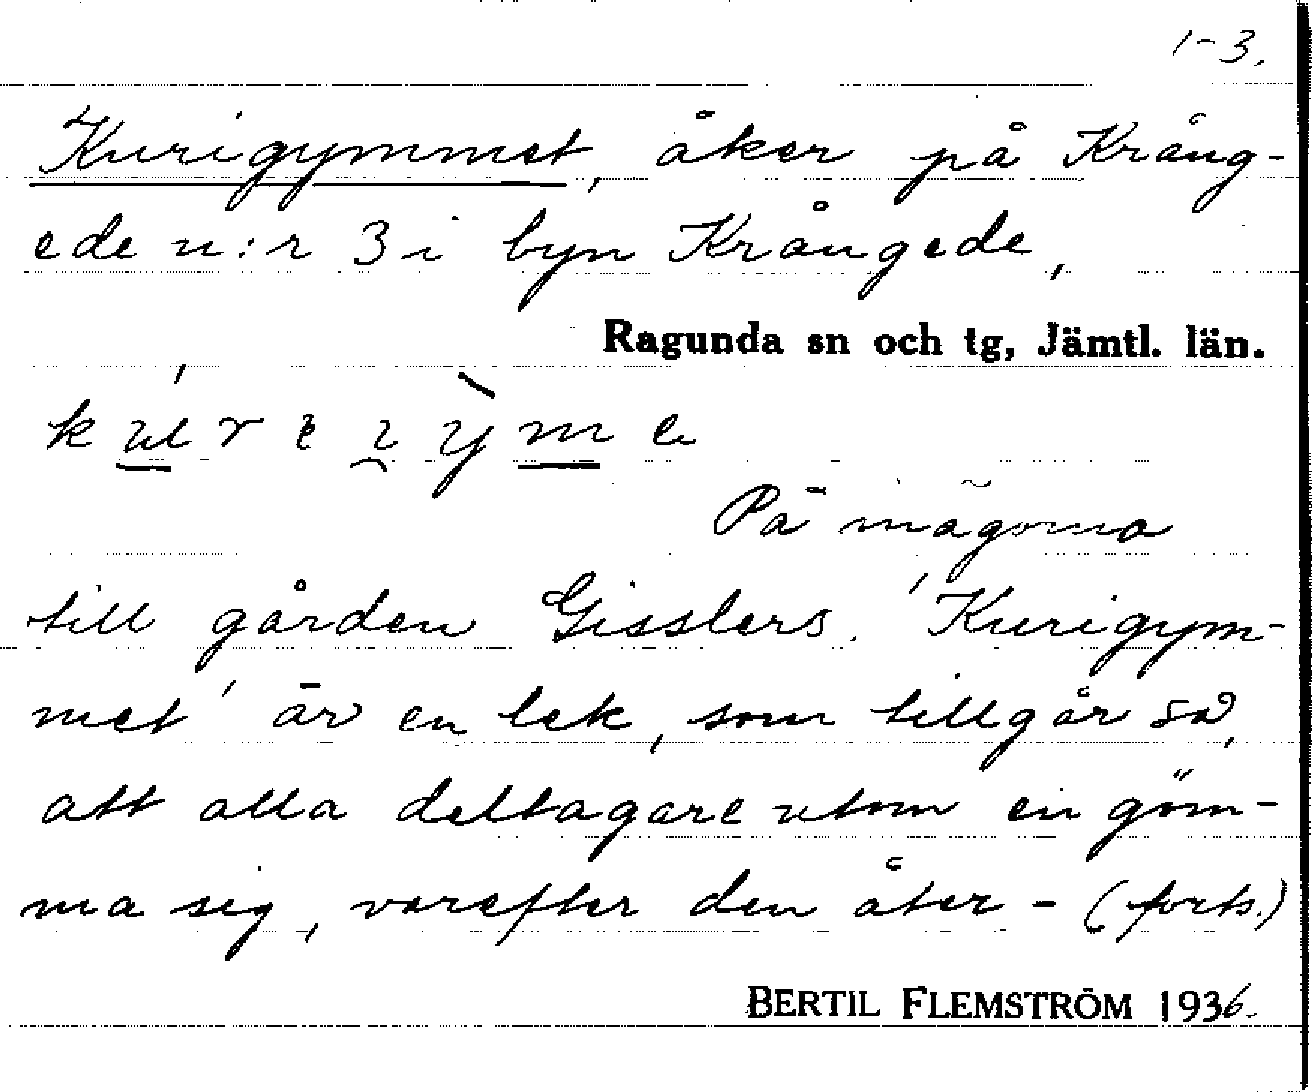 1-3.
Kurigymmet, åker på Krång-
ede n:r 3 i byn Krångede,
Ragunda sn och tg, Jämtl. län.
På inägorna
till gården Gisslers. 'Kurigym-
met' är en lek, som tillgår så,
att alla deltagare utom en göm-
ma sig, varefter den åter- (forts.)
BERTIL FLEMSTRÖM 1936.